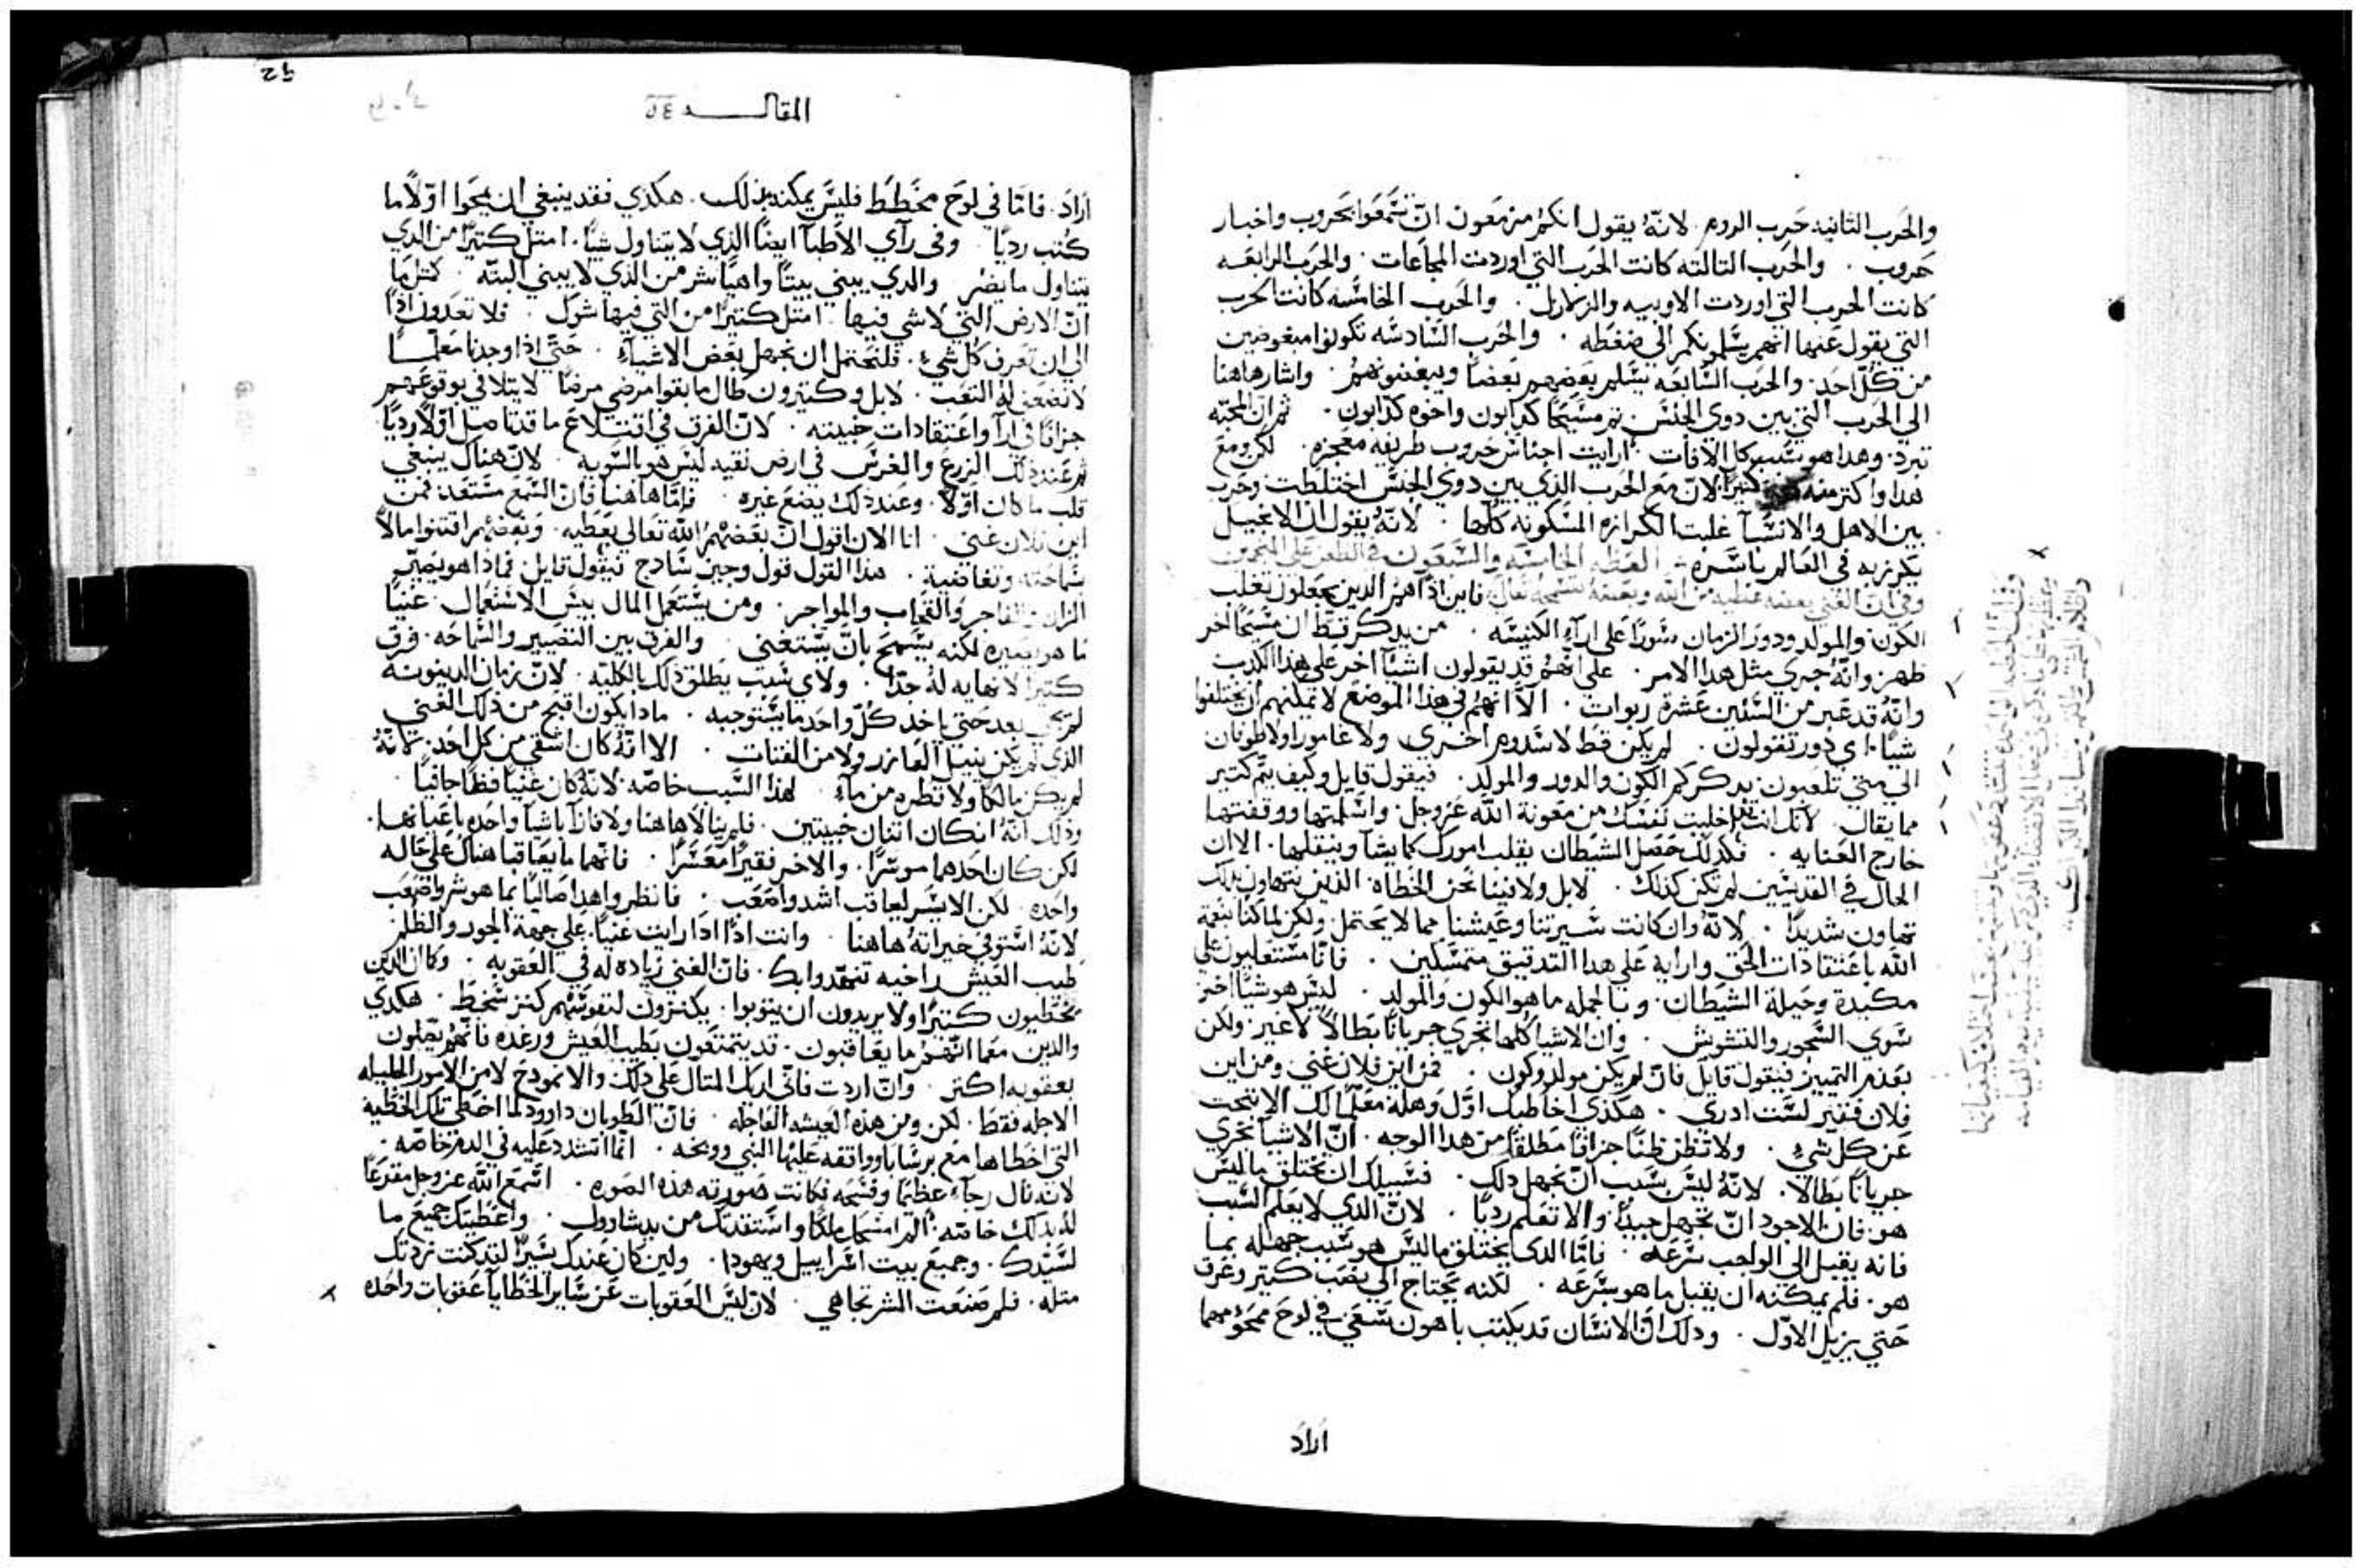 والحَرب الثانيه حَرب الروم. لانّهُ يقول انكمُ مزمَعون انّ تسَّمَعَوا بحَروب واخبار
حَروب . والحَرب التالته كانت الحَرب التي اوردت المجاعَات . والحَرب الرابعَه
كانت الحرب التي اوردت الاوبيه والزلازل . والحَرب الخامسَّه كانت الحرب
التي يقول عَنها انهم يسَّلمونكم الي ضغطه . والحَرب السَّادسَّه تكونوا مبغوضين
من كُلّ احَد. والحَرب السَّابعَه يسَّلم بعَضهم بَعضاً ويبغضونهمُ . واشار هاهنا
الي الحَرب التي بين دوي الجنسَّ. ثم مسَّيحَا كدابون واخوه كدابون. ثم ان المحَبّه
تبرد. وهدا هو سَّبب كل الافات . ارايت اجناسَّ حَروب طريفه معَجزه. لكن ومعَ
هدا واكتر منه كتيراً لانّ معَ الحَرب الدي بين دوي الجنسَّ اختلطت وحَرب
بين الاهل والانسَّبآ غلبت الكرازه المسَّكونه كلّها . لانّهُ يقول ان الانجيل
يكرز به في العَالم باسَّره العَظه الخامسَّه والسَّبعَون في الطعَن علي المنجمين
وفي ان الغني بعَضه عَطيه من الله وبعَضهُ بتسَّمحه تعَالي فاين ادّا هم الدين يجعَلون تغلب
الكون والمولد ودورَ الزمان سَّوراً علي ارآء الكنيسَّه . من يدكر قط ان مسَّيحَاً اخر
ظهر وانّهُ جري مثل هدا الامر . علي انّهمُ قد يقولون اشيآ اخر علي هدا الكدب
وانّهُ قد عَبر من السَّنين عَشرة ربوات . الّا انّهمُ في هدا الموضعَ لا يمكنهم ان يختلقوا
شياً. اي دور تقولون. لم يكن قط لا سَّدوم اخري ولا غامورا ولا طوفان
الي متي تلعَبون بدكركم الكون والدور والمولد. فيقول قايل وكيف يتم كتير
مما يقال. لانّك انت اخليت نفسَّك من معَونة الله عَز وجل. واسَّلمتها ووقفتها
خارج العَنايه . فكدلك حَصل الشيطان يقلب امورك كما يشآ وينقلها. الا ان
الحال في القديسَّين لم تكن كدلك . لا بل ولا فينا نحَن الخطاه الدين نتهاون بدلك
تهاون شديداً . لانّهُ وان كانت سَّيرتنا وعَيشنا مما لا يحَتمل ولكن لما كنا بنعَمة
الله باعَتقادات الحَق وارايه علي هدا التدقيق متمسَّكين . فانّا مسَّتعَليون علي
مكيدة وحَيلة الشيطان. وبالجمله ما هو الكون والمولد . ليسَّ هو شياً اخر
سَّوي السَّجور والتشويش . وان الاشيا كلّها تجري جرياناً بطالاً لا غير. ولكن
بعَدم التمييز فيقول قايل فان لم يكن مولد وكون . فمن اين فلان غني ومن اين
فلان فقير لسَّت ادري . هكذي اخاطبك اوّل وهله معَلماً لك الا تبحَت
عَن كل شيءٍ . ولا تظن ظناً جزافاً مطلقاً من هدا الوجه . انّ الاشيآ تجري
جرياناً بطالاً. لانّهُ ليسَّ بسَّبب انّ تجهل دلك . فسَّبيلك ان تختلق ما ليسَّ
هو. فان الاجود انّ تجهل جيداً والا تعَلم ردياً . لانّ الدي لا يعَلم السَّبب
فانه يقبل الي الواجب سَّرعَه . فامّا الدي يختلق ما ليسَّ هو سَّبب جهله بما
هو. فلم يمكنه ان يقبل ما هو بسَّرعَه . لكنه يحَتاج الي تعَب كتير وعَرق
حَتي يزيل الاوّل . ودلك ان الانسَّان قد يكتب باهون سَّعَي في لوح ممحَوّ مهما
اراد
المقالـــــه
اراد. فامّا في لوحَ مخطط فليسَّ يمكنه دلك . هكذي فقد ينبغي ان يمحَوا اوّلاً ما
كُتب ردياً . وفي رآي الاطبآ ايضاً الدي لا يتناول شياً. امتل كتيراً من الدي
يتناول ما يضر . والدي يبني بيتاً واهياً شر من الدي لا يبني البتّه . كتل ما
انّ الارض التي لا شي فيها. امتل كتيراً من التي فيها شوك . فلا تعَدون ادّا
الي ان تعَرف كل شيءٍ . فلتحَتمل ان تجهل بعَض الاشيآء . حَتّي ادا وجدنا معَلماً
لا تضعَن لهُ التعَب . لا بل وكتيرون طال ما بقوا مرضي مرضاً لا يتلافي بوقوعَهم
جزافاً في ارآ واعَتقادات خبيته . لانّ الفرق في اقتلاعَ ما قد تاصل اوّلاً ردياً.
ثم عَند دلك الزرع والغرسَّ في ارض نقيه ليسَّ هو بالسَّويه . لانّ هناك ينبغي
قلب ما كان اوّلاً. وعَند دلك يضعَ غيره . فامّا هاهنا فان السَّمعَ مسَّتعَد. فمن
اين فلان غني . انا الان اقول ان بعَضهمُ الله تعَالي يعَطيه. وبعَضهم اقتنوا مالاً
بسَّماحَته وتغاضيه . هدا القول قول وجيز سَّادج فيقول قايل فمادا هو يصَيّر
الزاني الفاجر والقحَاب والمواجر. ومن يسَّتعَمل المال بيسَّ الاسَّتعَمال . غنيّاً
ما هو يصَيره لكنه يسَّمحَ بانّ يسَّتغني . والفرق بين التصيير والسَّماحَه. فرق
كتيرا لا نهايه لهُ جدّا . ولاي سَّبب يطلق دلك بالكليّه. لانّ زمان الدينونه
لم يجي بعد حَتي ياخد كُلّ واحَد ما يسَّتوجبه . مادا يكون اقبحَ من دلك الغني
الدي لم يكن ينيل العَازر ولا من الفتات . الا انّهُ كان اشقي من كل احَد. لانّهُ
لم يكن مالكاً ولا قطره من مآءٍ . لهدا السَّبب خاصّه لانّهُ كان غنياً فظاً جافياً .
ودلك انّهُ ان كان اتنان خبيتين. فلم ينالا هاهنا ولا فازا باشيآ واحَده باعَيانها.
لكن كان احَدهما موسَّراً. والاخر فقيراً معَسَّراً . فانهما ما يعَاقبا هناك علي حَاله
واحَده. لكن الايسَّر يعاقب اشد واصَعَب . فانظر وا هدا صالياً بما هو شر واصَعَب
لانّهُ اسَّتوفي خيراته هاهنا . وانت ادّا ادا رايت غنياً علي جهة الجور والظلم
طيب العَيش راخيه تنهّد وابك. فانّ الغني زياده له في العَقوبه . وكما ان الدين
يخطيون كتيراً ولا يريدون ان يتوبوا. يكنزون لنفوسَّهم كنز سَّخط. هكذي
والدين معَما انّهمُ ما يعَاقبون. قد يتمتعَون بطيب العَيش ورغده فانّهمُ يصّلون
بعَقوبه اكتر . وانّ اردت فانّي اريك المتال علي دلك والانمودج لا من الامور الجليله
الاجله فقط. لكن ومن هده العَيشه العَاجله . فانّ الطوبان داوود لما اخطي تلك الخطيه
التي اخطاها معَ برسَّابا وواقفه عَليها النبي ووبخه . انّما اتشدد عَليه في الدم خاصّه.
لانه نال رجآءً عَظيماً وقسَّمه فكانت صَورته هده الصَوره. اسَّمعَ الله عَز وجل مقرعَاً
لهُ بدلك خاصّه. الم امسَّحَك ملكاً واسَّتنقدتك من يد شاوول . واعَطيتك جميعَ ما
لسَّيّدك. وجميعَ بيت اسَّراييل ويهودا. ولين كان عَندك يسَّيراً لقد كنت زدتك
متله. فلم صَنعَت الشر تجاهي . لان ليسَّ العَقوبات عَن سَّاير الخطايا عَقوبات واحَده